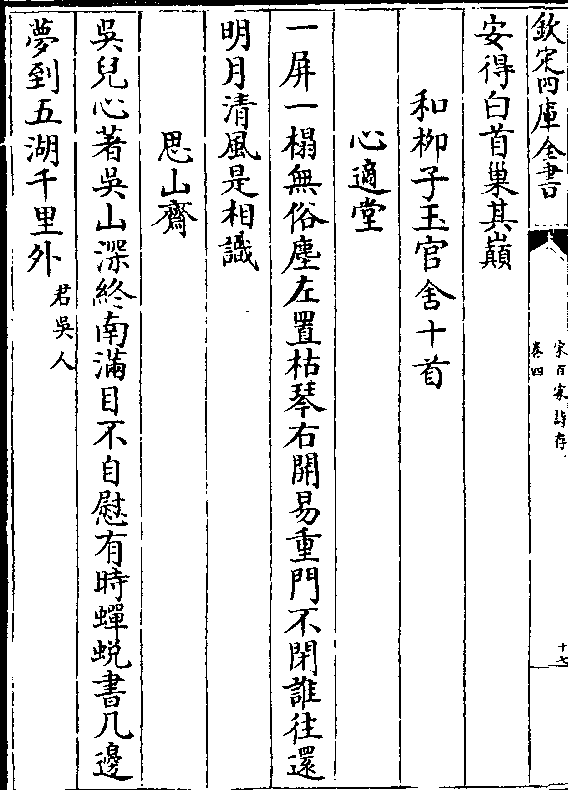 欽定四庫全書
宋百家詩存
卷四
十七
安得白首巢其巔
和栁子玉官舍十首
心適堂
一屏一榻無俗塵左置枯琴右開易重門不閉誰往還
明月清風是相識
思山齋
吳兒心著吳山深終南滿目不自慰有時蟬蜕書几邊
夢到五湖千里外君吳人